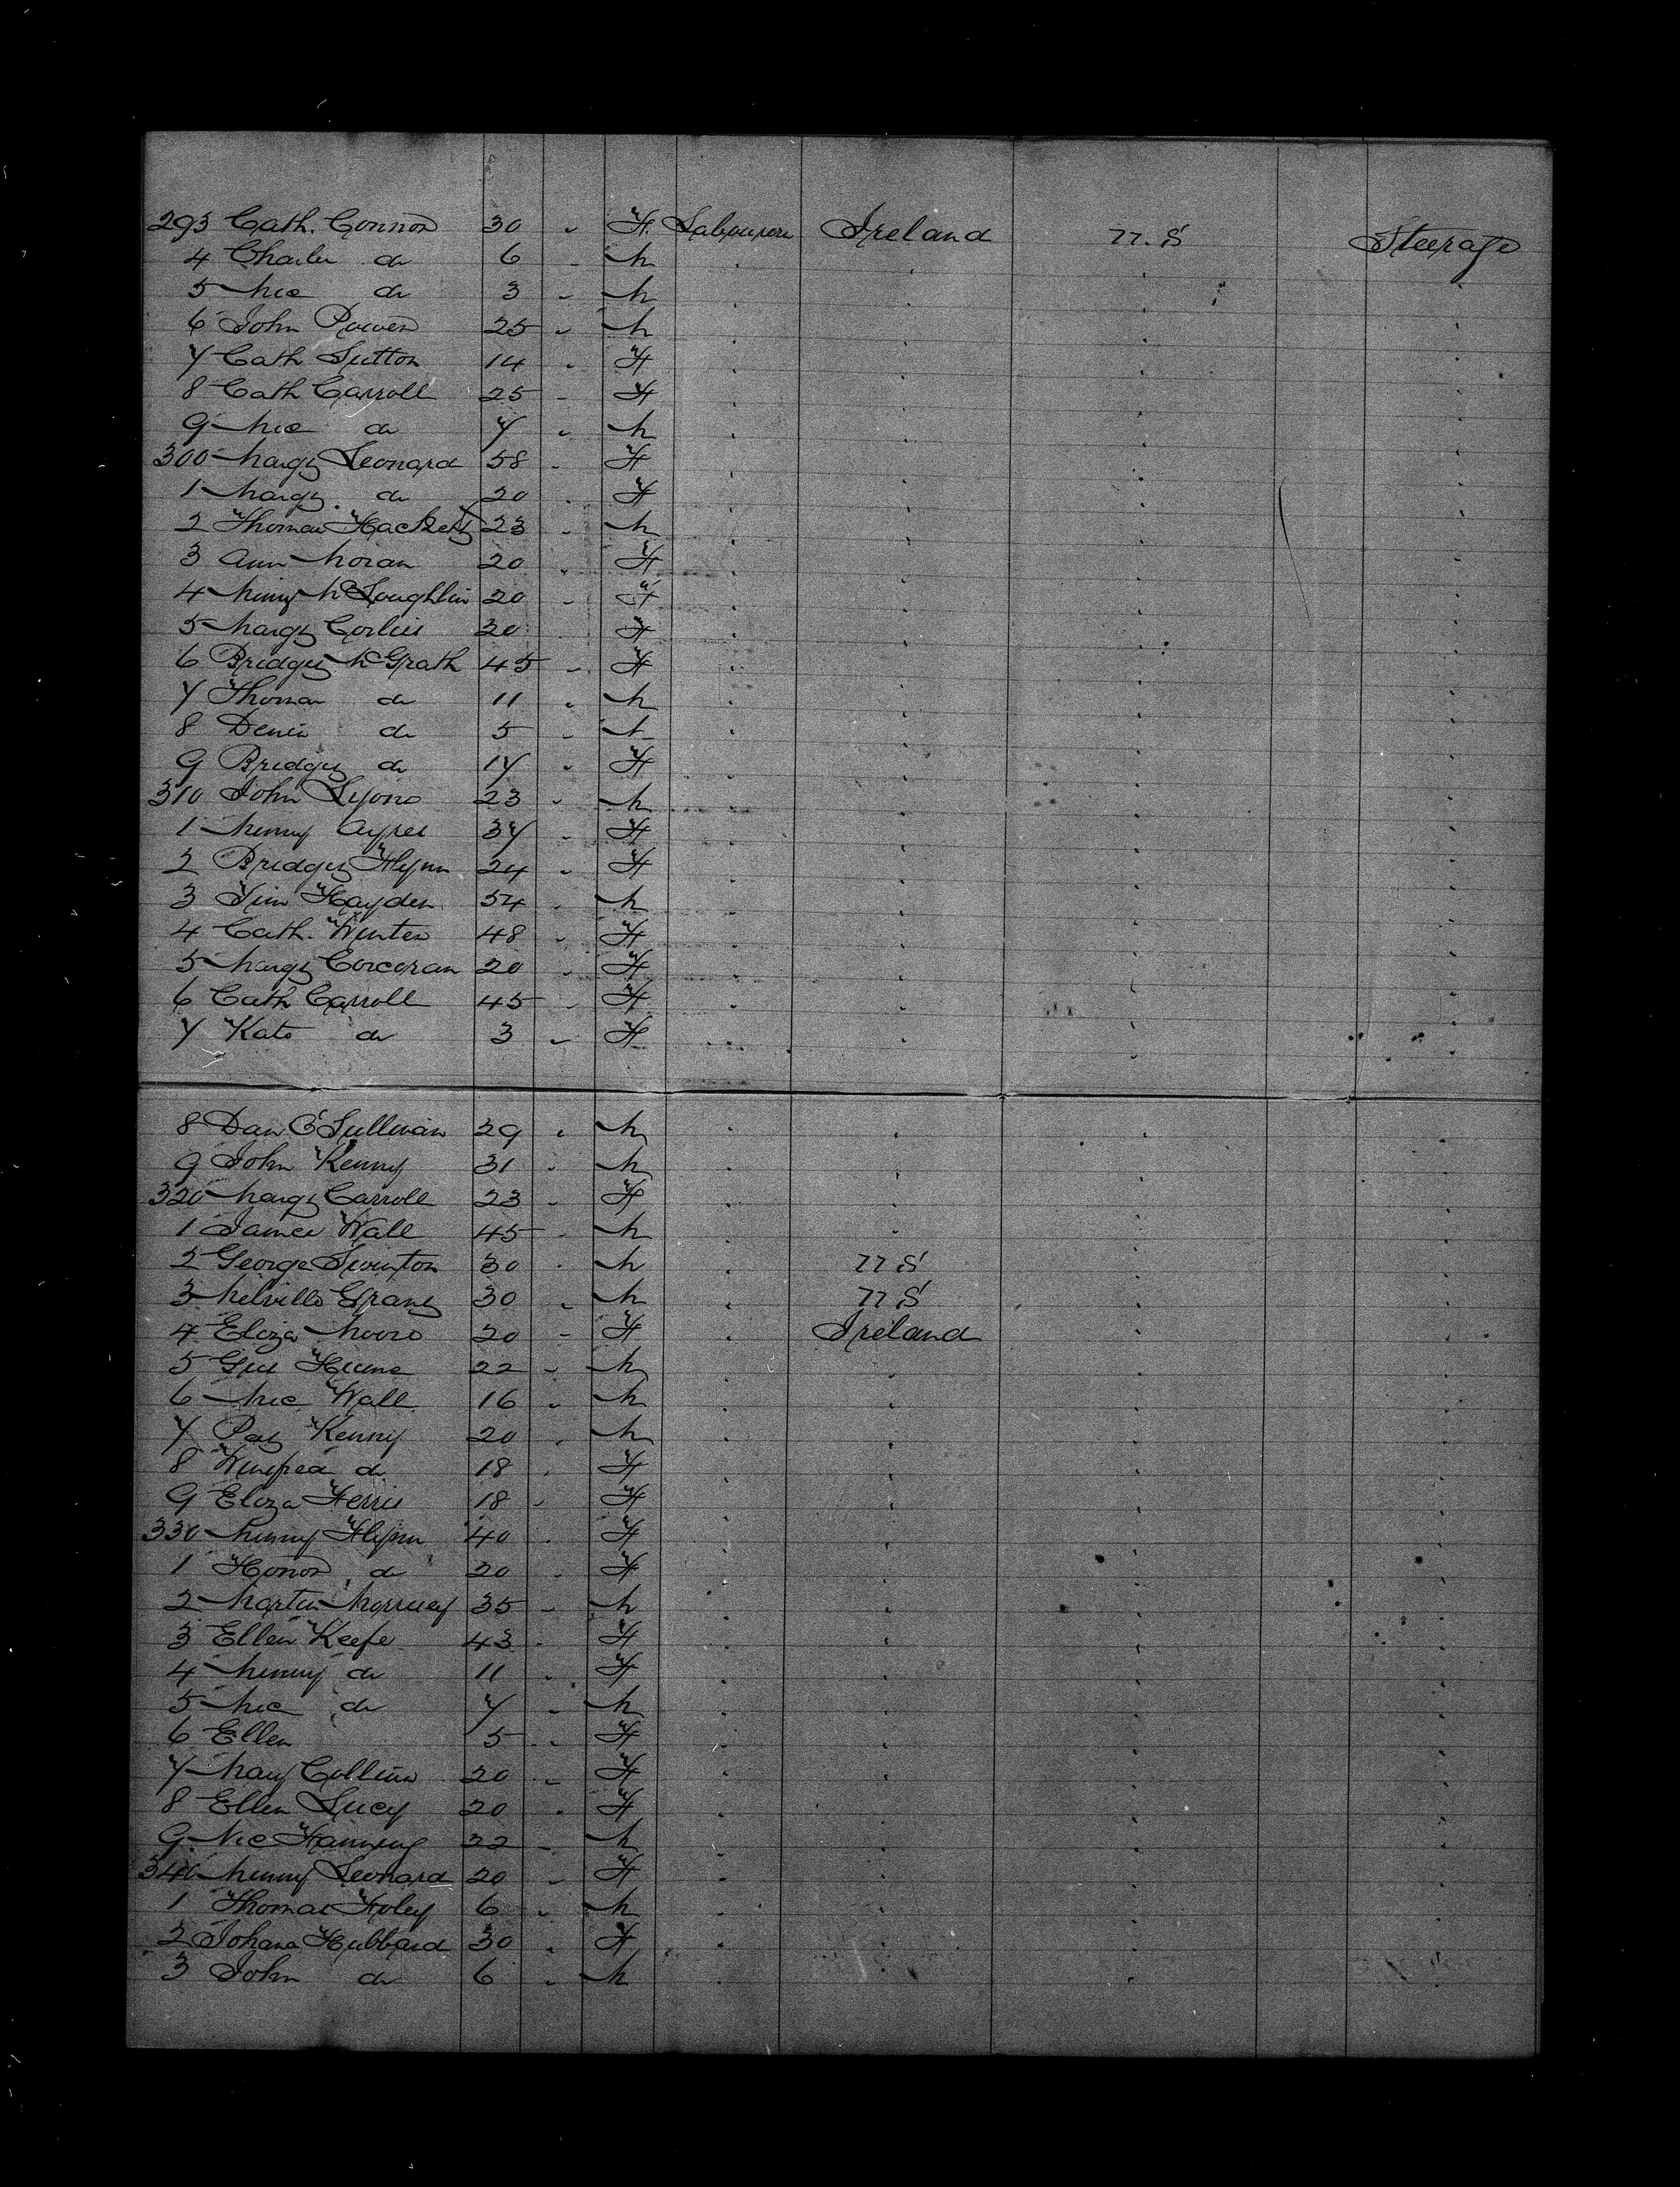 293 Cath. Connor 30 " F. Labourers Ireland U.S Steerage
4 Charles do 6 " M
5 Mic do 3 " M
6 John Power 25 " M
7 Cath Sutton 14 " F
8 Cath Carroll 25 " F
9 Mic do 7 " M
300 Margt Leonard 58 " F
1 Margt do 20 " F
2 Thomas Hackett 23 " M
3 Ann Moran 20 " F
4 McLoughlin 20 " F
5 Margt 20 F
6 Bridget McGrath 45 " F
7 Thomas do 11 " M
8 Denis do 5 " M
9 Bridget do 17 " F
310 John Lyons 23 " M
1 Ayres 37 " F
2 Bridget Flynn 24 " F
3 Hayden 54 " M
4 Cath. Winter 48 " F
5 Margt Corcoran 20 " F
6 Cath Carroll 45 " F
7 Kate do 3 " F
8 Dan O'Sullivan 29 " M
9 John Kenny 31 " M
320 Margt Carroll 23 " F
1 James Wall 45 " M
2 George Swinton 30 " M U S
3 Melville Grant 30 " M U S
4 Eliza Moore 20 " F Ireland
5 Hume 22 " M
6 Mic Wall 16 " M
7 Pat Kenny 20 " M
8 Winifred do 18 " F
9 Eliza Ferris 18 " F
330 Flynn 40 " F
1 Honor do 20 " F
2 Martin 35 " M
3 Ellen Keefe 43 " F
4 do 11 " F
5 Mic do 7 " M
6 Ellen 5 " F
7 Mary Collins 20 " F
8 Ellen Lucy 20 " F
9 Fanning 22 " M
340 Leonard 20 " F
1 Thomas Foley 6 " M
2 Johana Hubbard 30 " F
3 John do 6 " M